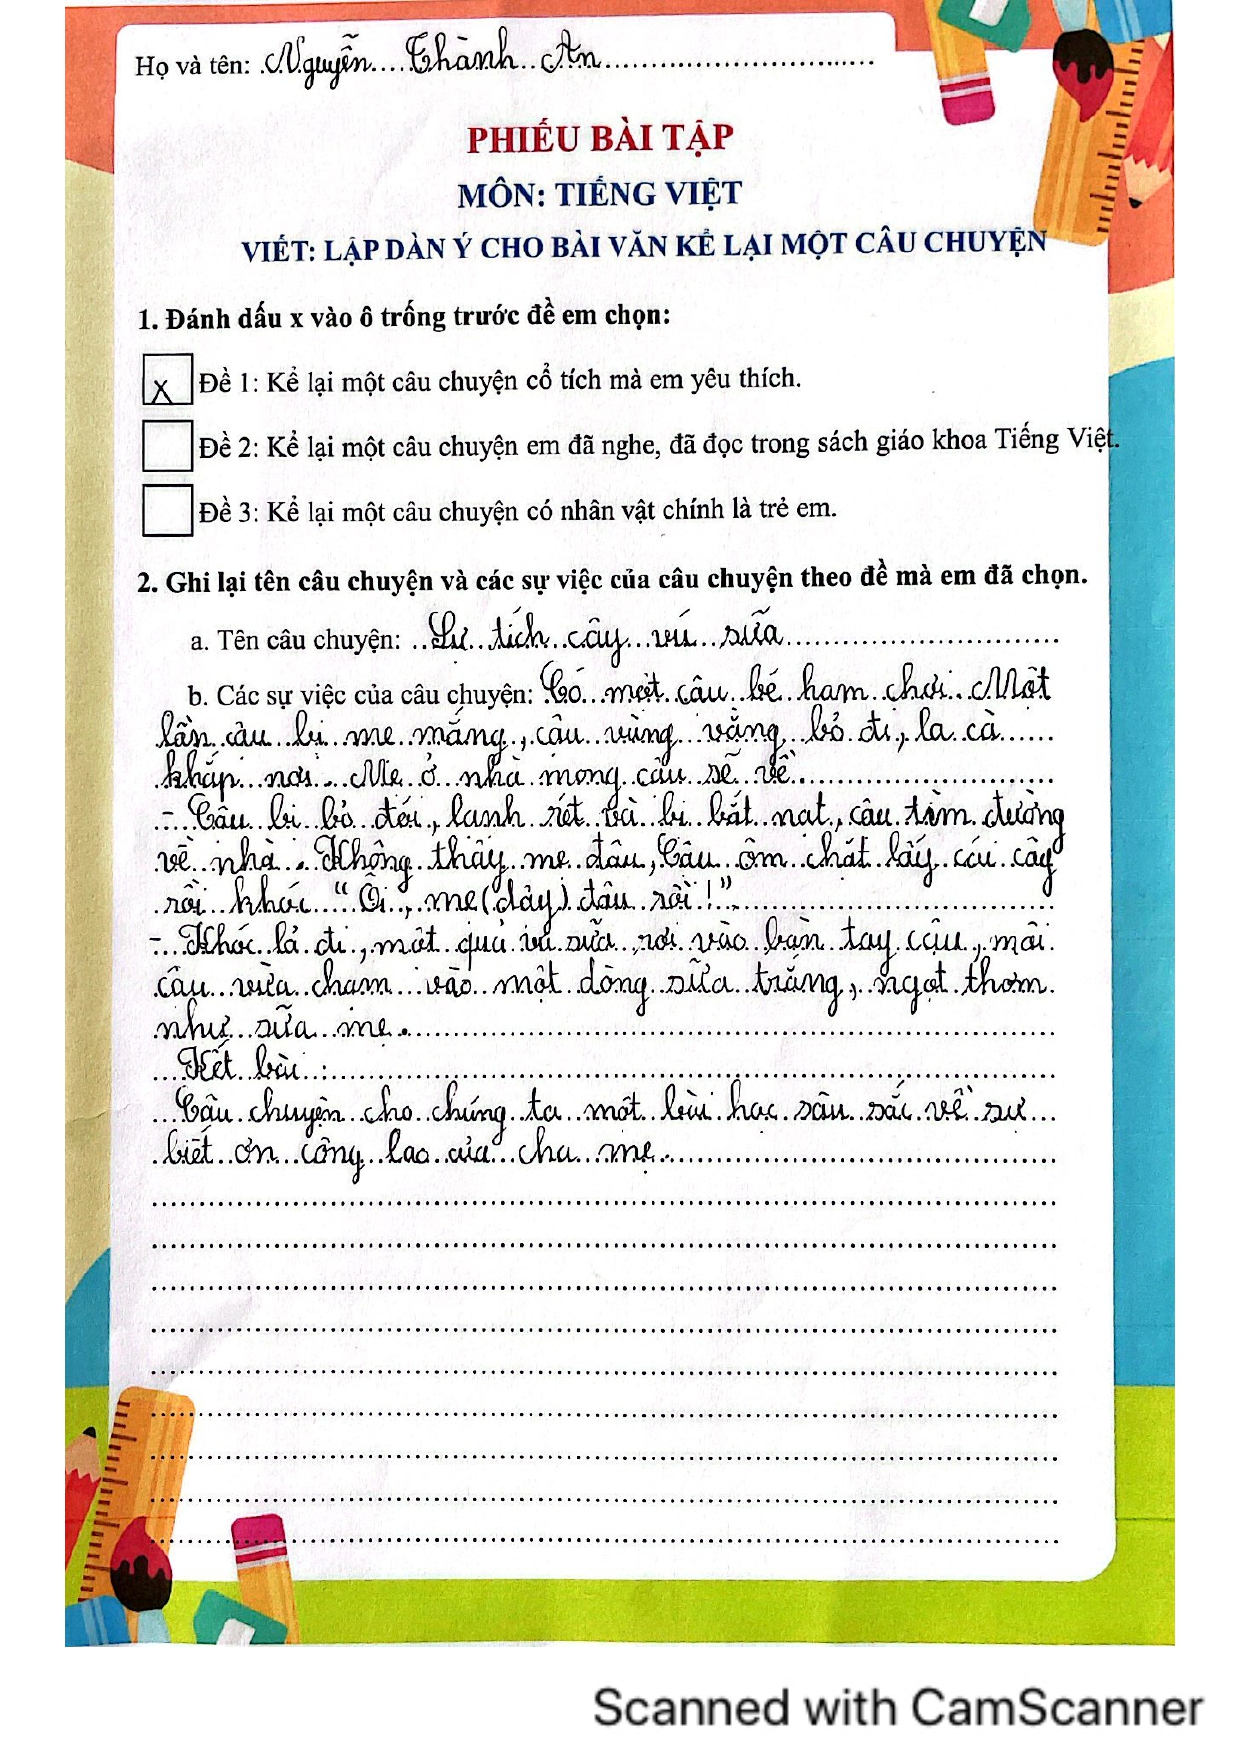 Họ và tên: Nguyễn Thành An
PHIẾU BÀI TẬP
MÔN: TIẾNG VIỆT
VIẾT: LẬP DÀN Ý CHO BÀI VĂN KỂ LẠI MỘT CÂU CHUYỆN
1. Đánh dấu x vào ô trống trước đề em chọn:
x Đề 1: Kể lại một câu chuyện cổ tích mà em yêu thích.
Đề 2: Kể lại một câu chuyện em đã nghe, đã đọc trong sách giáo khoa Tiếng Việt.
Đề 3: Kể lại một câu chuyện có nhân vật chính là trẻ em.
2. Ghi lại tên câu chuyện và các sự việc của câu chuyện theo đề mà em đã chọn.
a. Tên câu chuyện: Sự tích cây vú sữa
b. Các sự việc của câu chuyện: Có một cậu bé ham chơi. Một
lần cậu bị mẹ mắng, cậu vùng vằng bỏ đi, la cà
khắp nơi. Mẹ ở nhà mong cậu sẽ về.
- Cậu bị bỏ đói, lạnh rét và bị bắt nạt, cậu tìm đường
về nhà. Không thấy mẹ đâu, Cậu ôm chặt lấy cái cây
rồi khóc "Ôi, mẹ (dậy) đâu rồi!".
- Khóc lả đi, một quả vú sữa rơi vào bàn tay cậu, môi
cậu vừa chạm vào một dòng sữa trắng, ngọt thơm
như sữa mẹ.
Kết bài:
Câu chuyện cho chúng ta một bài học sâu sắc về sự
biết ơn công lao của cha mẹ.
Scanned with CamScanner